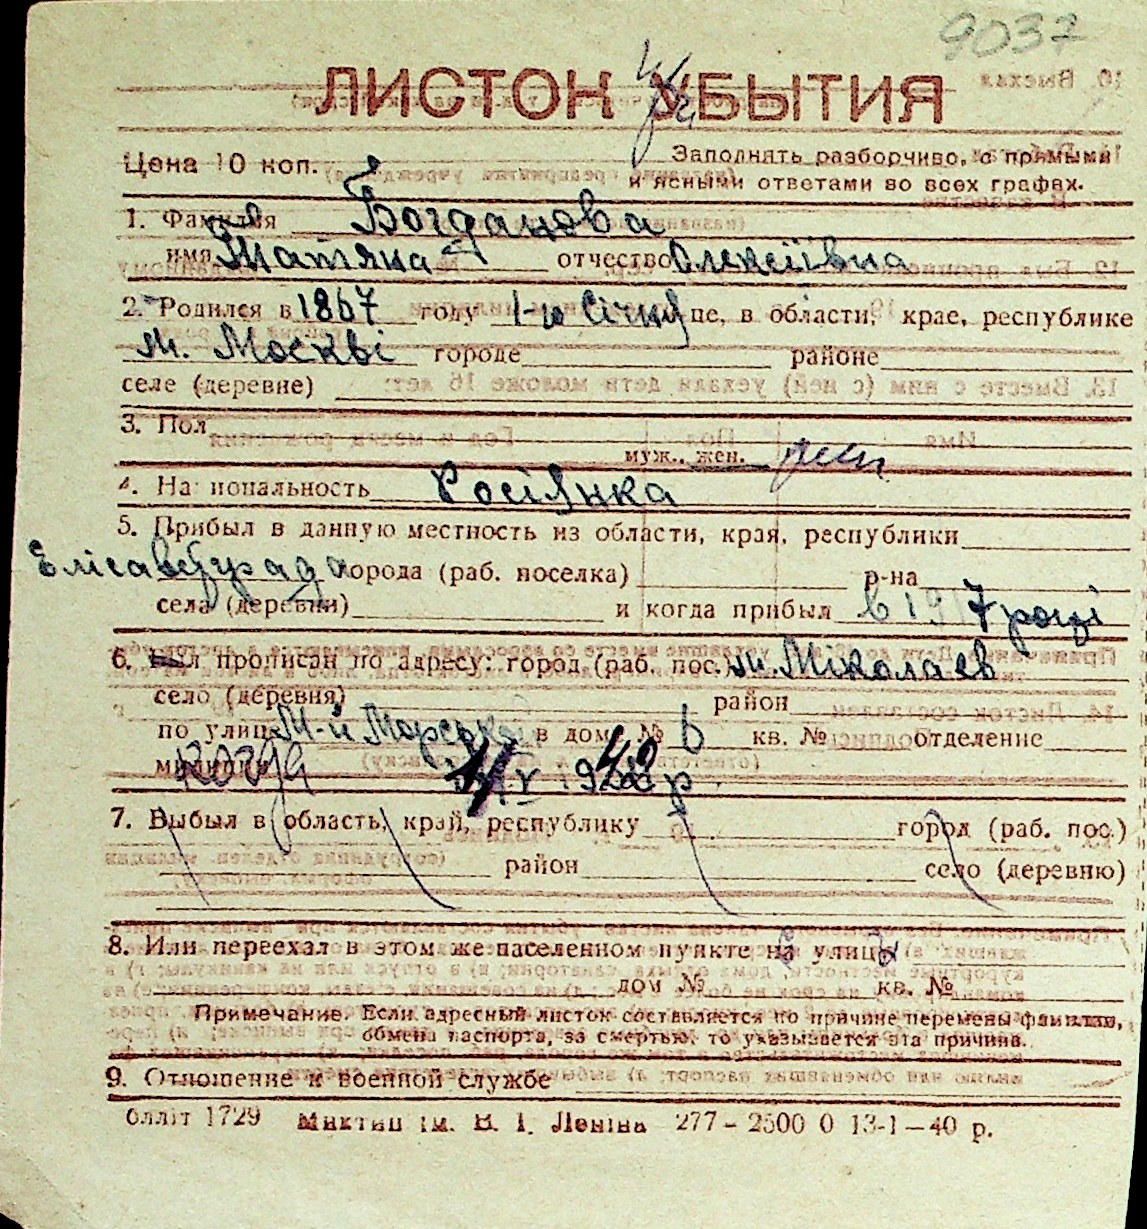 9037
ЛИСТОК УБЫТИЯ
Цена 10 коп.
Заполнять разборчиво, с прямыми
и ясными ответами во всех графах.
1. Фамилия Богданова
имя Татяна отчество Олексіївна
2. Родился в 1867 году 1-го Січня це, в области, крае, республике
м. Москві городе районе
селе (деревне)
3. Пол
муж., жен. жен
4. Национальность Росіянка
5. Прибыл в данную местность из области, края, республики
Елісаветграда города (раб. поселка) р-на
села (деревни) и когда прибыл в 1917 році
6. Был прописан по адресу: город (раб. пос.) м. Міколаєв
село (деревня) район
по улице М-й Морській в доме № 6 кв. № отделение
милиции когда V 1940 р.
7. Выбыл в область, край, республику город (раб. пос.)
район село (деревню)
8. Или переехал в этом же населенном пункте на улицу
дом № кв. №
Примечание. Если адресный листок составляется по причине перемены фамилии,
обмена паспорта, за смертью, то указывается эта причина.
9. Отношение к военной службе
блліт 1729 ім. В. І. Леніна 277-2500 0 13-1-40 р.